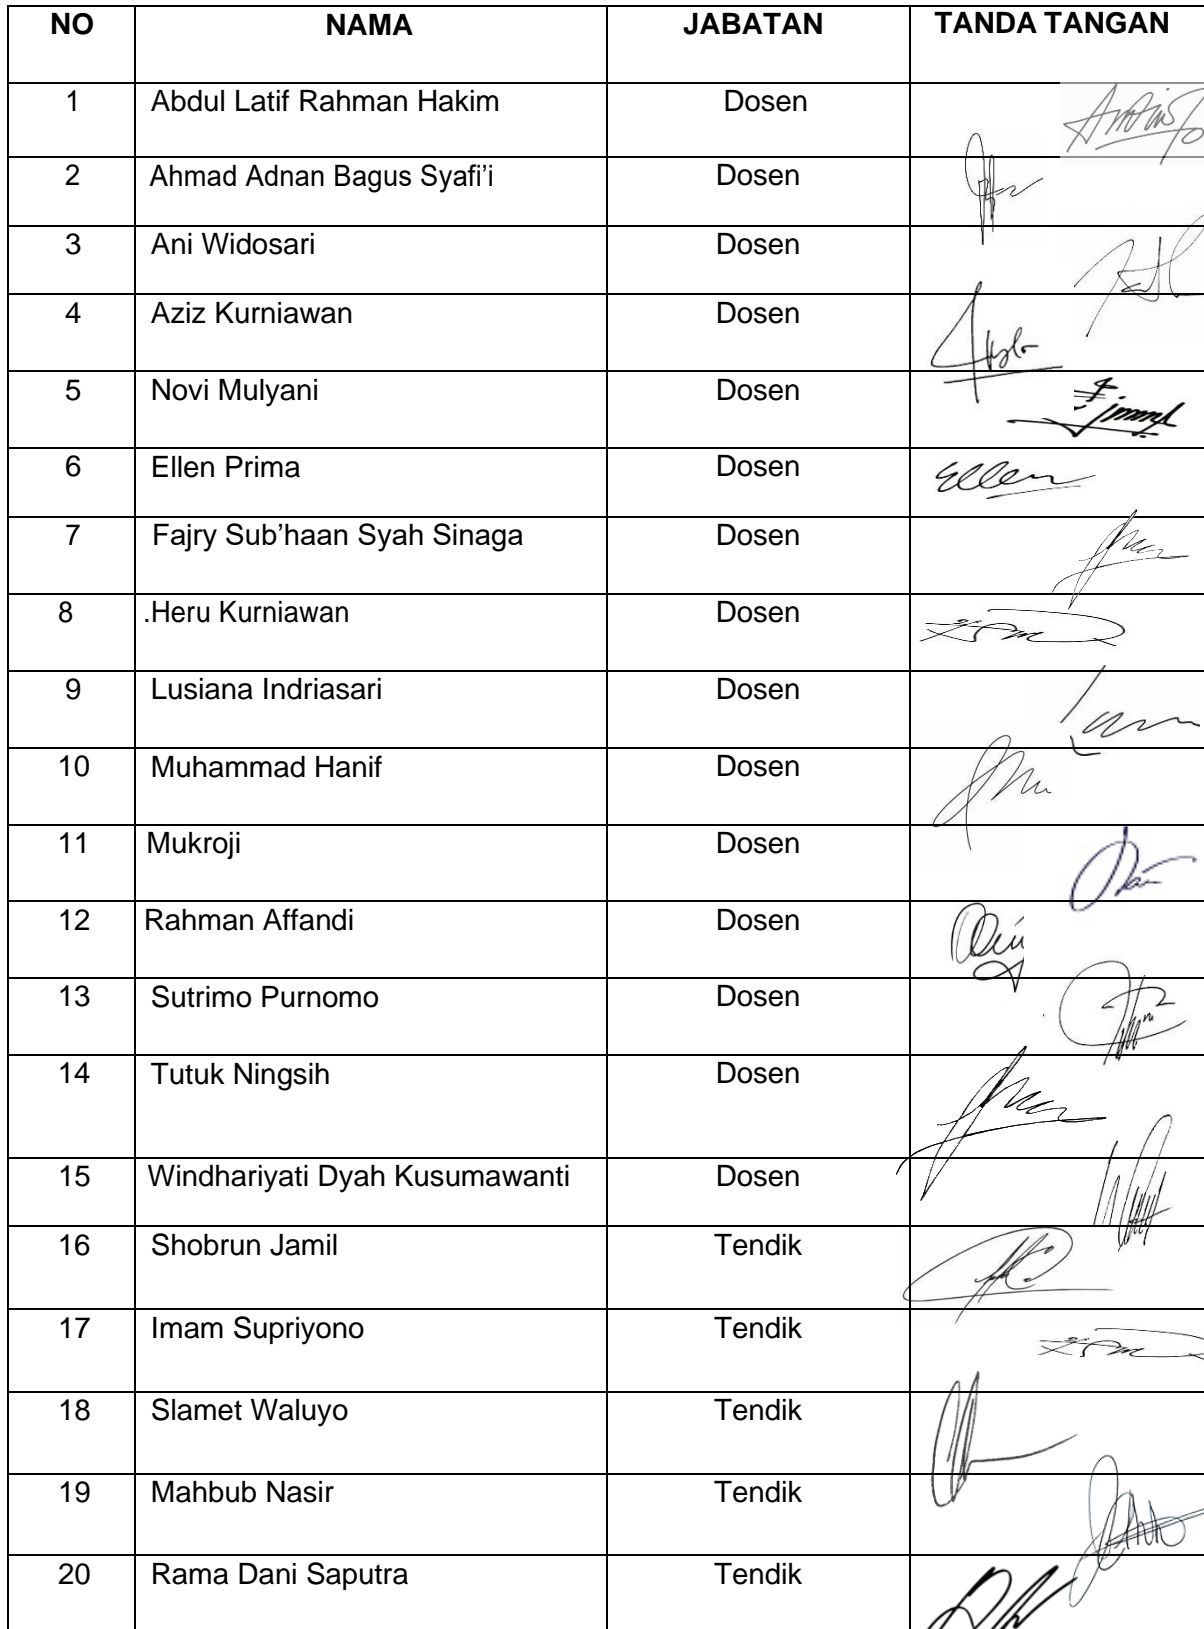 NO NAMA JABATAN TANDA TANGAN
1 Abdul Latif Rahman Hakim Dosen
2 Ahmad Adnan Bagus Syafi’i Dosen
3 Ani Widosari Dosen
4 Aziz Kurniawan Dosen
5 Novi Mulyani Dosen
6 Ellen Prima Dosen Ellen
7 Fajry Sub’haan Syah Sinaga Dosen
8 .Heru Kurniawan Dosen
9 Lusiana Indriasari Dosen
10 Muhammad Hanif Dosen
11 Mukroji Dosen
12 Rahman Affandi Dosen
13 Sutrimo Purnomo Dosen
14 Tutuk Ningsih Dosen
15 Windhariyati Dyah Kusumawanti Dosen
16 Shobrun Jamil Tendik
17 Imam Supriyono Tendik
18 Slamet Waluyo Tendik
19 Mahbub Nasir Tendik
20 Rama Dani Saputra Tendik